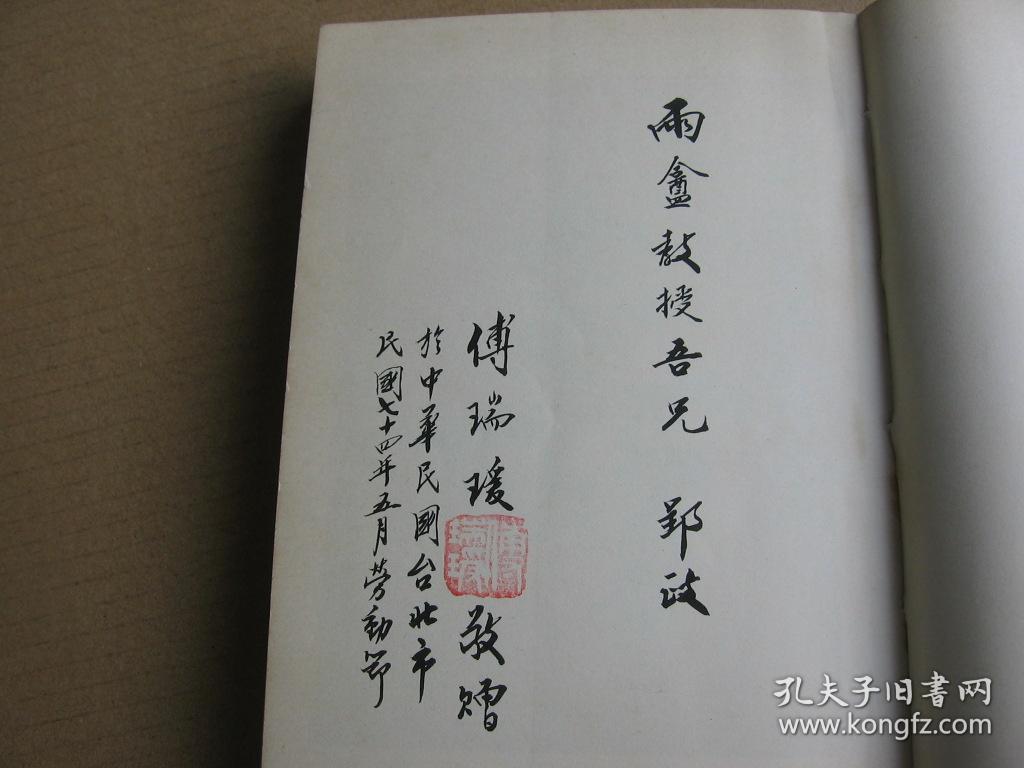 雨盦教授吾兄 郢政
傅瑞瑗 敬贈
於中華民國台北市
民國七十四年五月勞動節
傅瑞瑗
孔夫子旧书网
www.kongfz.com